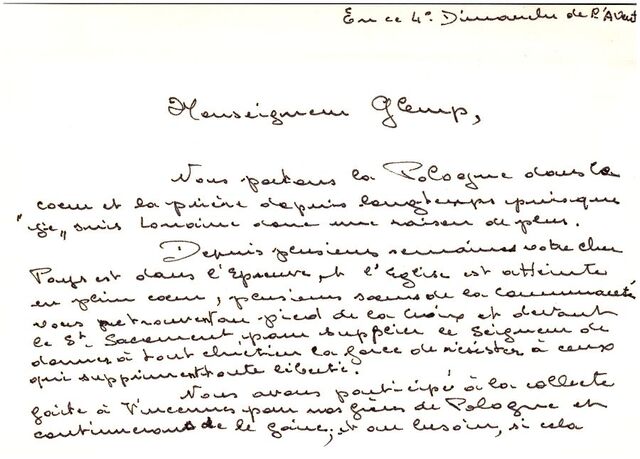 En ce 4e Dimanche de l'Avent
Monseigneur Glemp,
Nous portons la Pologne dans le
coeur et la prière depuis longtemps puisque
"je" suis Lorraine donc une raison de plus.
Depuis plusieurs semaines votre cher
Pays est dans l'Epreuve, et l'Eglise est atteinte
en plein coeur, plusieurs soeurs de la communauté
vous retrouvent au pied de la Croix et devant
le St. Sacrement pour supplier le Seigneur de
donner à tout chrétien la grâce de résister à ceux
qui suppriment toute liberté.
Nous avons participé à la collecte
faite à Vincennes pour nos frères de Pologne et
continuerons de le faire, et au besoin, si cela